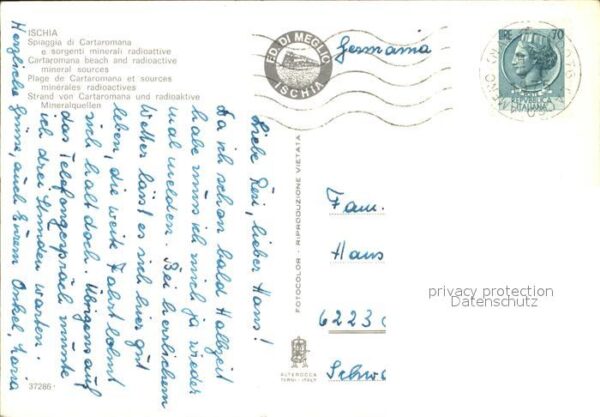 ISCHIA
Spiaggia di Cartaromana
e sorgenti minerali radioattive
Cartaromana beach and radioactive
mineral sources
Plage de Cartaromana et sources
minerales radioactives
Strand von Cartaromana und radioaktive
Mineralquellen
ED. DI MEGLIO
ISCHIA
Germania
RE 70
REPUBBLICA
ITALIANA
Liebe Resi, lieber Hans!
Da ich schon bald Halbzeit
habe muss ich mich ja wieder
mal melden. Bei herrlichem
Wetter lässt es sich hier gut
leben, die weite Fahrt lohnt
sich halt doch. Übrigens auf
das Telefongespräch musste
ich drei Stunden warten.
Herzliche Grüsse, auch Eurem Onkel, Maria
FOTOCOLOR - RIPRODUZIONE VIETATA
Fam.
Hans
privacy protection
Datenschutz
6223
Schw
ALTEROCCA
TERNI - ITALY
37286